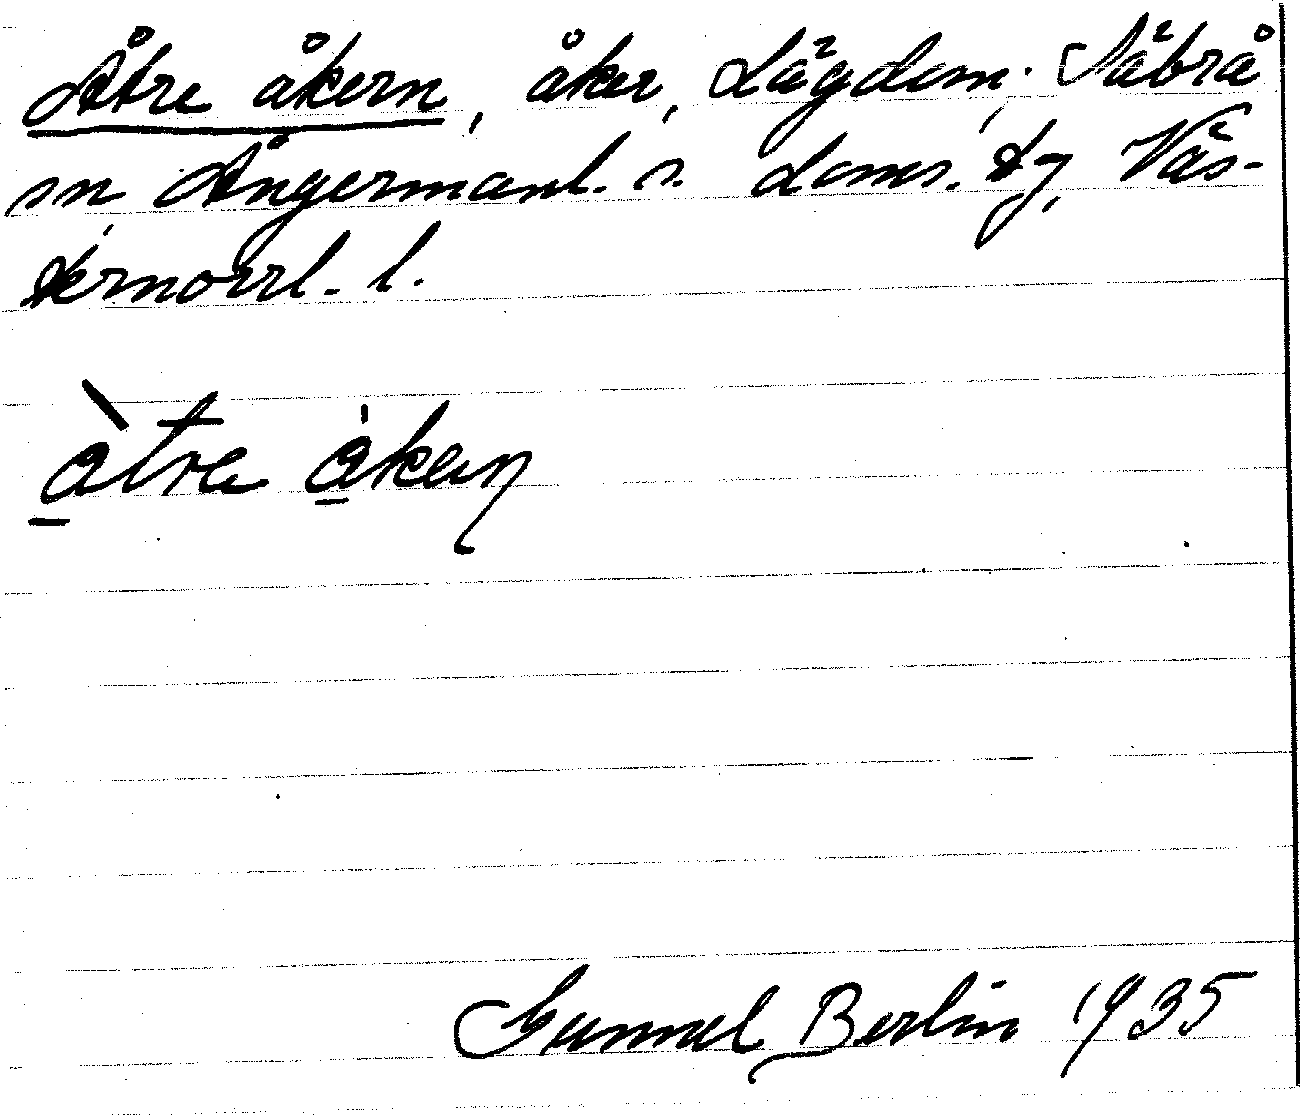 Åtre åkern, åker, Lägdom, Säbrå
sn, Ångermanl. s. doms. tg, Väs-
ternorrl. l.
àtre åkaɳ
Gunnel Berlin 1935